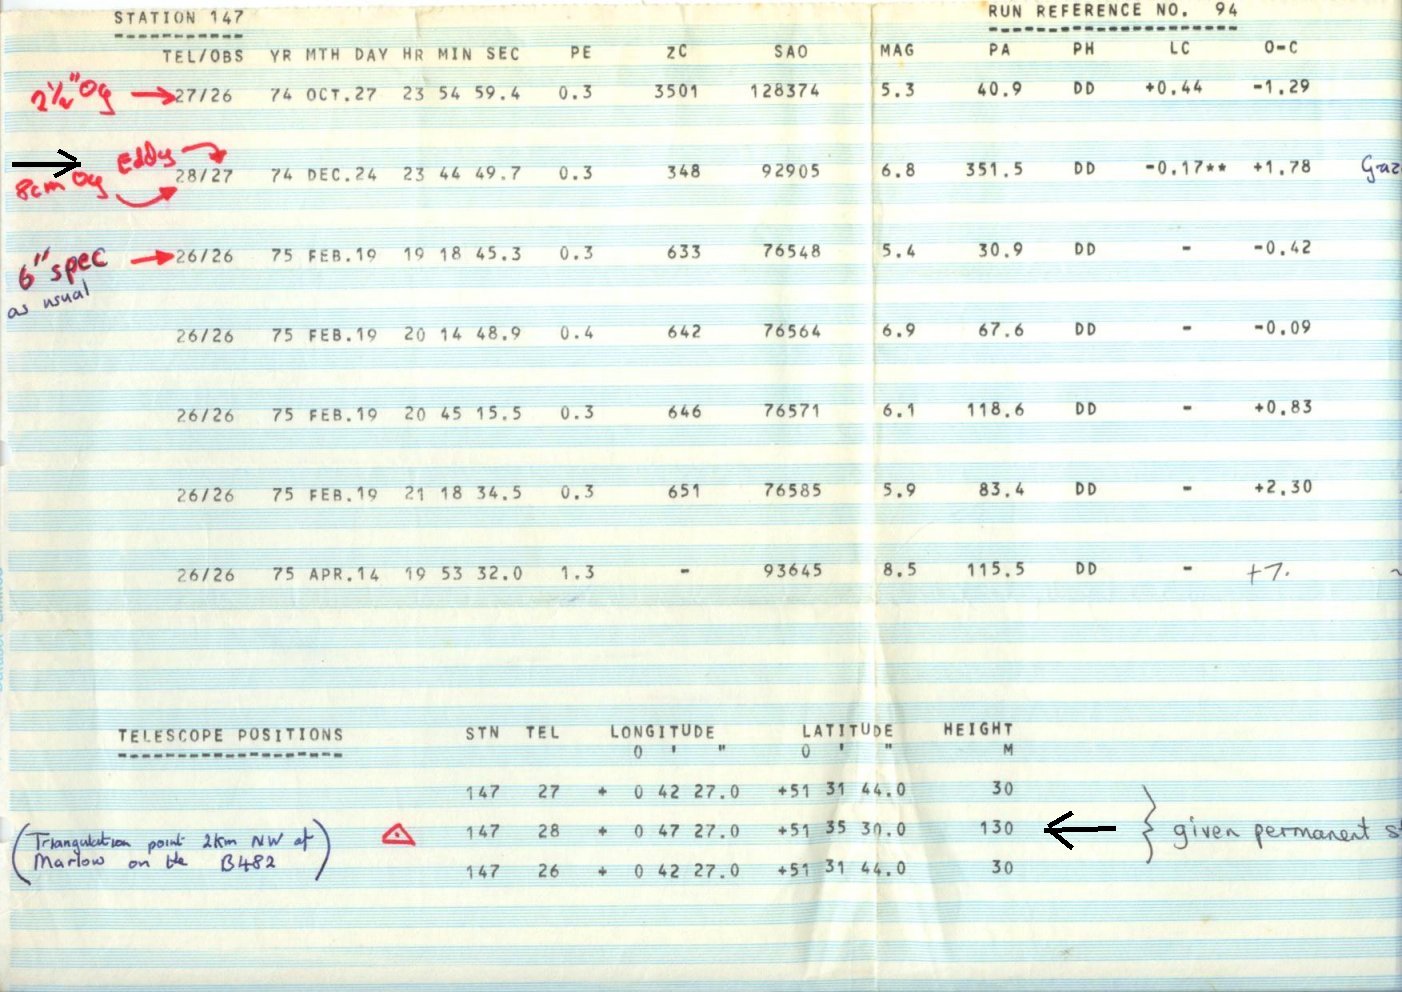 STATION 147 RUN REFERENCE NO. 94
TEL/OBS YR MTH DAY HR MIN SEC PE ZC SAO MAG PA PH LC O-C
2½" Og 27/26 74 OCT.27 23 54 59.4 0.3 3501 128374 5.3 40.9 DD +0.44 -1.29
Eddy
8cm Og 28/27 74 DEC.24 23 44 49.7 0.3 348 92905 6.8 351.5 DD -0.17** +1.78 Graz
6" spec 26/26 75 FEB.19 19 18 45.3 0.3 633 76548 5.4 30.9 DD - -0.42
as usual
26/26 75 FEB.19 20 14 48.9 0.4 642 76564 6.9 67.6 DD - -0.09
26/26 75 FEB.19 20 45 15.5 0.3 646 76571 6.1 118.6 DD - +0.83
26/26 75 FEB.19 21 18 34.5 0.3 651 76585 5.9 83.4 DD - +2.30
26/26 75 APR.14 19 53 32.0 1.3 - 93645 8.5 115.5 DD - +7.
TELESCOPE POSITIONS STN TEL LONGITUDE LATITUDE HEIGHT
O ' " O ' " M
147 27 + 0 42 27.0 +51 31 44.0 30
(Triangulation point 2km NW of 147 28 + 0 47 27.0 +51 35 30.0 130 given permanent st
Marlow on the B482) 147 26 + 0 42 27.0 +51 31 44.0 30